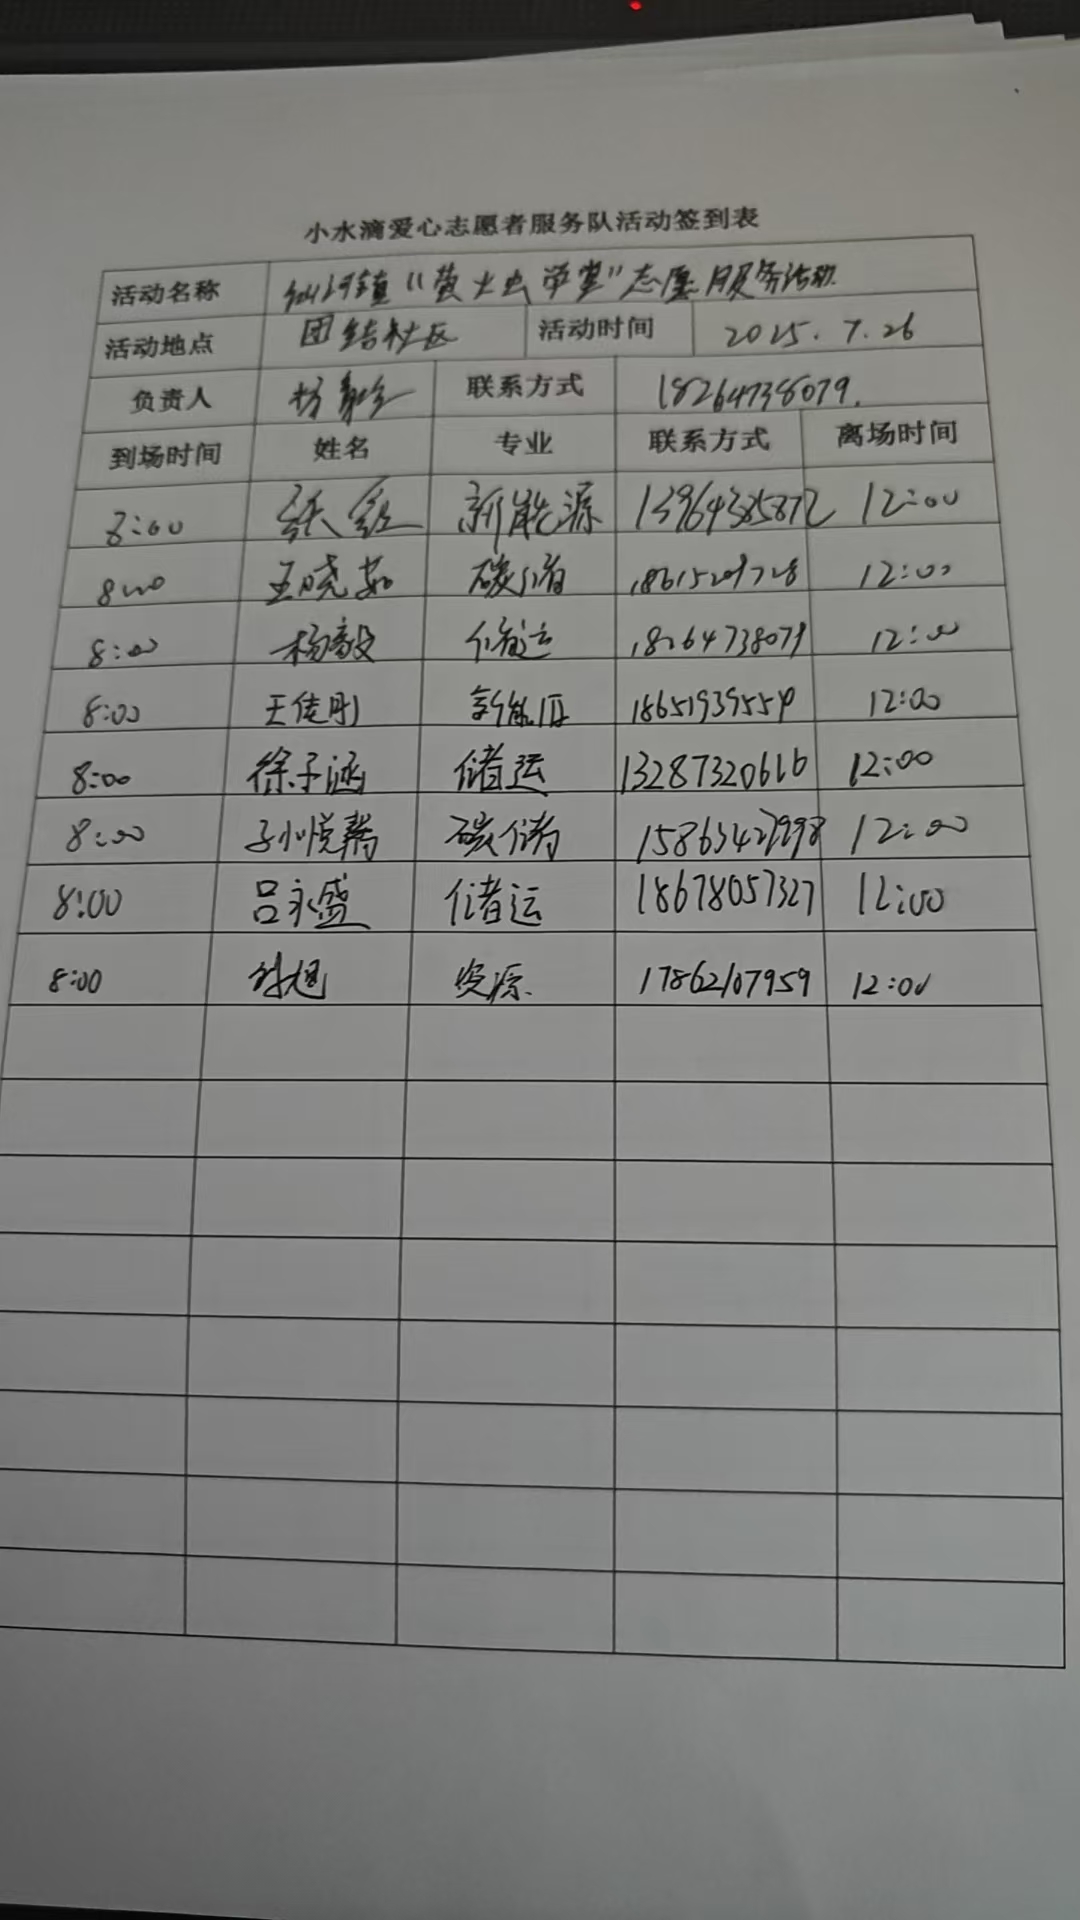 小水滴爱心志愿者服务队活动签到表
活动名称 仙河镇“萤火虫学堂”志愿服务活动
活动地点 团结社区 活动时间 2025.7.26
负责人 杨 联系方式 18264738079.
到场时间 姓名 专业 联系方式 离场时间
8:00 张 新能源 13964385872 12:00
8:00 王晓茹 碳储 12:00
8:00 杨毅 储运 18264738079 12:00
8:00 王佳刚 新能源 18651939554 12:00
8:00 徐子涵 储运 13287320616 12:00
8:00 孙悦 碳储 12:00
8:00 吕永盛 储运 18678057327 12:00
8:00 资源 17862107959 12:00